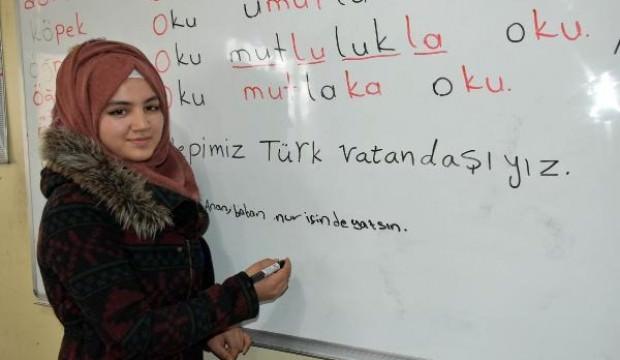 umutla
köpek Oku mutlulukla oku.
Oku mutlaka oku.
epimiz Türk vatandaşıyız.
Anan, baban nur içinde yatsın.